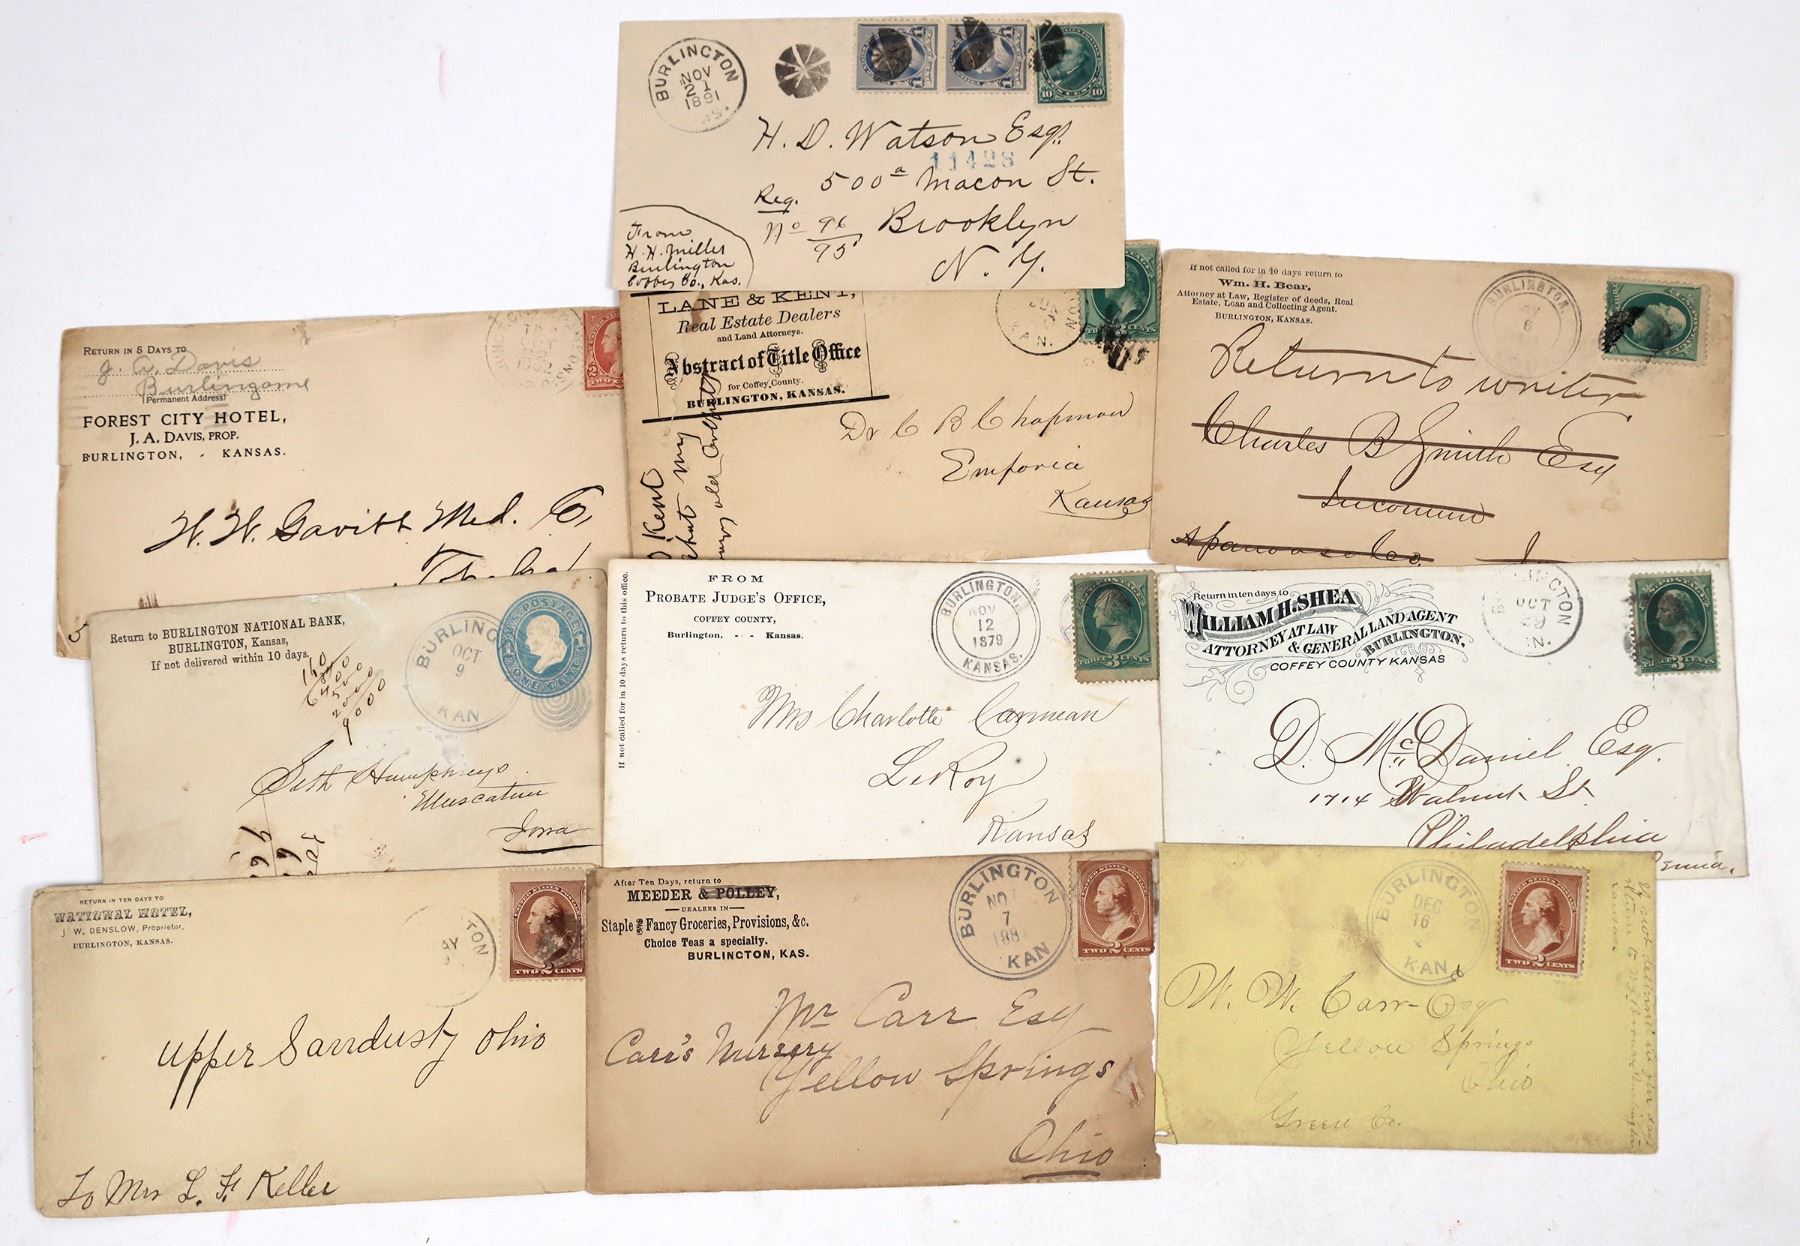 BURLINGTON
NOV
21
1891
KAS.
10 TEN CENTS 10
H. D. Watson Esq.
11428
500a Macon St.
Reg.
No 96
95
Brooklyn
N. Y.
From
H. H. Miller
Burlington
Coffey Co., Kas.
RETURN IN 5 DAYS TO
J. A. Davis
Burlingame
(Permanent Address)
FOREST CITY HOTEL,
J. A. DAVIS, PROP.
BURLINGTON, - KANSAS.
W. W. Gavitt Med. Co,
LANE & KENT,
Real Estate Dealers
and Land Attorneys.
Abstract of Title Office
for Coffey County.
BURLINGTON, KANSAS.
KAN.
Dr C B Chapman
Emporia
Kansas
Kent
my
old
If not called for in 10 days return to
Wm. H. Bear,
Attorney at Law, Register of deeds, Real
Estate, Loan and Collecting Agent.
BURLINGTON, KANSAS.
BURLINGTON.
6
Return to writer
Charles B Smith Esq
Return to BURLINGTON NATIONAL BANK,
BURLINGTON, Kansas,
If not delivered within 10 days.
BURLING
OCT
9
KAN
Seth Humphreys
Muscatine
Iowa
FROM
PROBATE JUDGE'S OFFICE,
COFFEY COUNTY,
Burlington, - - Kansas.
If not called for in 10 days return to this office.
BURLINGTON,
NOV
12
1879
KANSAS.
THREE CENTS
Mrs Charlotte Carmean
LeRoy
Kansas
Return in ten days to
WILLIAM H. SHEA
ATTORNEY AT LAW
& GENERAL LAND AGENT
BURLINGTON.
COFFEY COUNTY KANSAS
INGTON
OCT
29
N.
THREE CENTS
D. McDaniel Esq.
1714 Walnut St.
Philadelphia
RETURN IN TEN DAYS TO
NATIONAL HOTEL,
J. W. DENSLOW, Proprietor,
BURLINGTON, KANSAS.
TON
AY
TWO 2 CENTS
Upper Sandusty Ohio
To Mrs L. F. Keller
After Ten Days, return to
MEEDER & POLLEY,
DEALERS IN
Staple and Fancy Groceries, Provisions, &c.
Choice Teas a specialty.
BURLINGTON, KAS.
BURLINGTON
NO
7
188
KAN
TWO 2 CENTS
Mr Carr Esq
Carr's Nursery
Yellow Springs
Ohio
BURLINGTON
DEC
16
KAN
TWO 2 CENTS
W. W. Carr Esq
Yellow Springs
Ohio
Green Co.